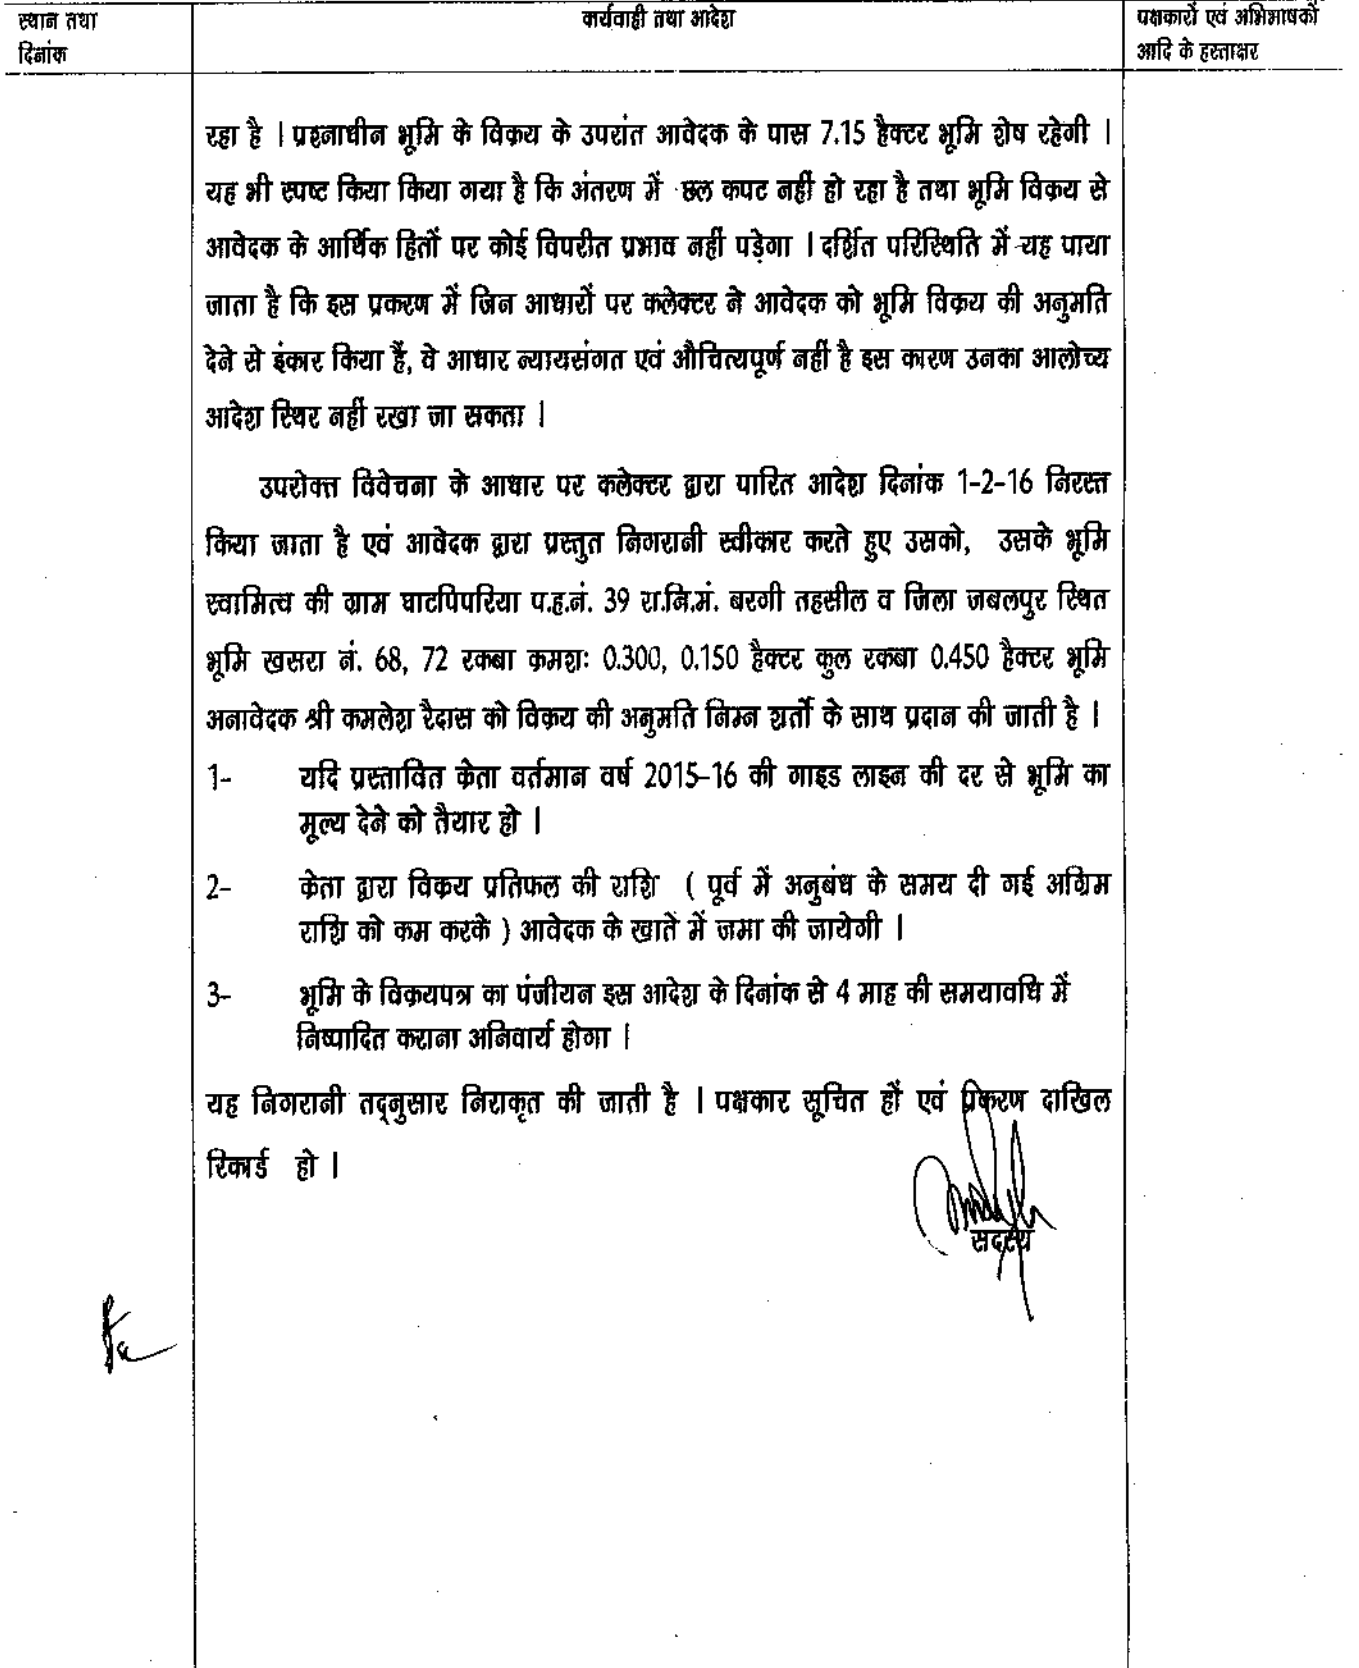 स्थान तथा
दिनांक
कार्यवाही तथा आदेश
पक्षकारों एवं अभिभाषकों
आदि के हस्ताक्षर
रहा है । प्रश्नाधीन भूमि के विक्रय के उपरांत आवेदक के पास 7.15 हैक्टर भूमि शेष रहेगी ।
यह भी स्पष्ट किया किया गया है कि अंतरण में छल कपट नहीं हो रहा है तथा भूमि विक्रय से
आवेदक के आर्थिक हितों पर कोई विपरीत प्रभाव नहीं पड़ेगा । दर्शित परिस्थिति में यह पाया
जाता है कि इस प्रकरण में जिन आधारों पर कलेक्टर ने आवेदक को भूमि विक्रय की अनुमति
देने से इंकार किया हैं, वे आधार न्यायसंगत एवं औचित्यपूर्ण नहीं है इस कारण उनका आलोच्य
आदेश स्थिर नहीं रखा जा सकता ।
उपरोक्त विवेचना के आधार पर कलेक्टर द्वारा पारित आदेश दिनांक 1-2-16 निरस्त
किया जाता है एवं आवेदक द्वारा प्रस्तुत निगरानी स्वीकार करते हुए उसको, उसके भूमि
स्वामित्व की ग्राम घाटपिपरिया प.ह.नं. 39 रा.नि.मं. बरगी तहसील व जिला जबलपुर स्थित
भूमि खसरा नं. 68, 72 रकबा क्रमशः 0.300, 0.150 हैक्टर कुल रकबा 0.450 हैक्टर भूमि
अनावेदक श्री कमलेश रैदास को विक्रय की अनुमति निम्न शर्तो के साथ प्रदान की जाती है ।
1- यदि प्रस्तावित केता वर्तमान वर्ष 2015-16 की गाइड लाइन की दर से भूमि का
मूल्य देने को तैयार हो ।
2- केता द्वारा विक्रय प्रतिफल की राशि ( पूर्व में अनुबंध के समय दी गई अग्रिम
राशि को कम करके ) आवेदक के खाते में जमा की जायेगी ।
3- भूमि के विक्रयपत्र का पंजीयन इस आदेश के दिनांक से 4 माह की समयावधि में
निष्पादित कराना अनिवार्य होगा ।
यह निगरानी तद्नुसार निराकृत की जाती है । पक्षकार सूचित हों एवं प्रकरण दाखिल
रिकार्ड हो ।
सदस्य